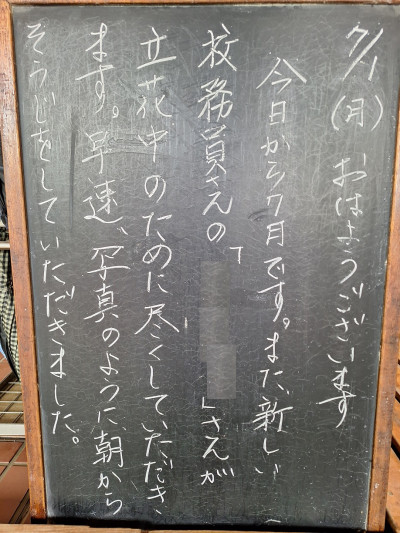 7/1(月) おはようございます
今日から7月です。また、新しい
校務員さんの「」さんが
立花中のために尽くしていただき
ます。早速、写真のように、朝から
そうじをしていただきました。